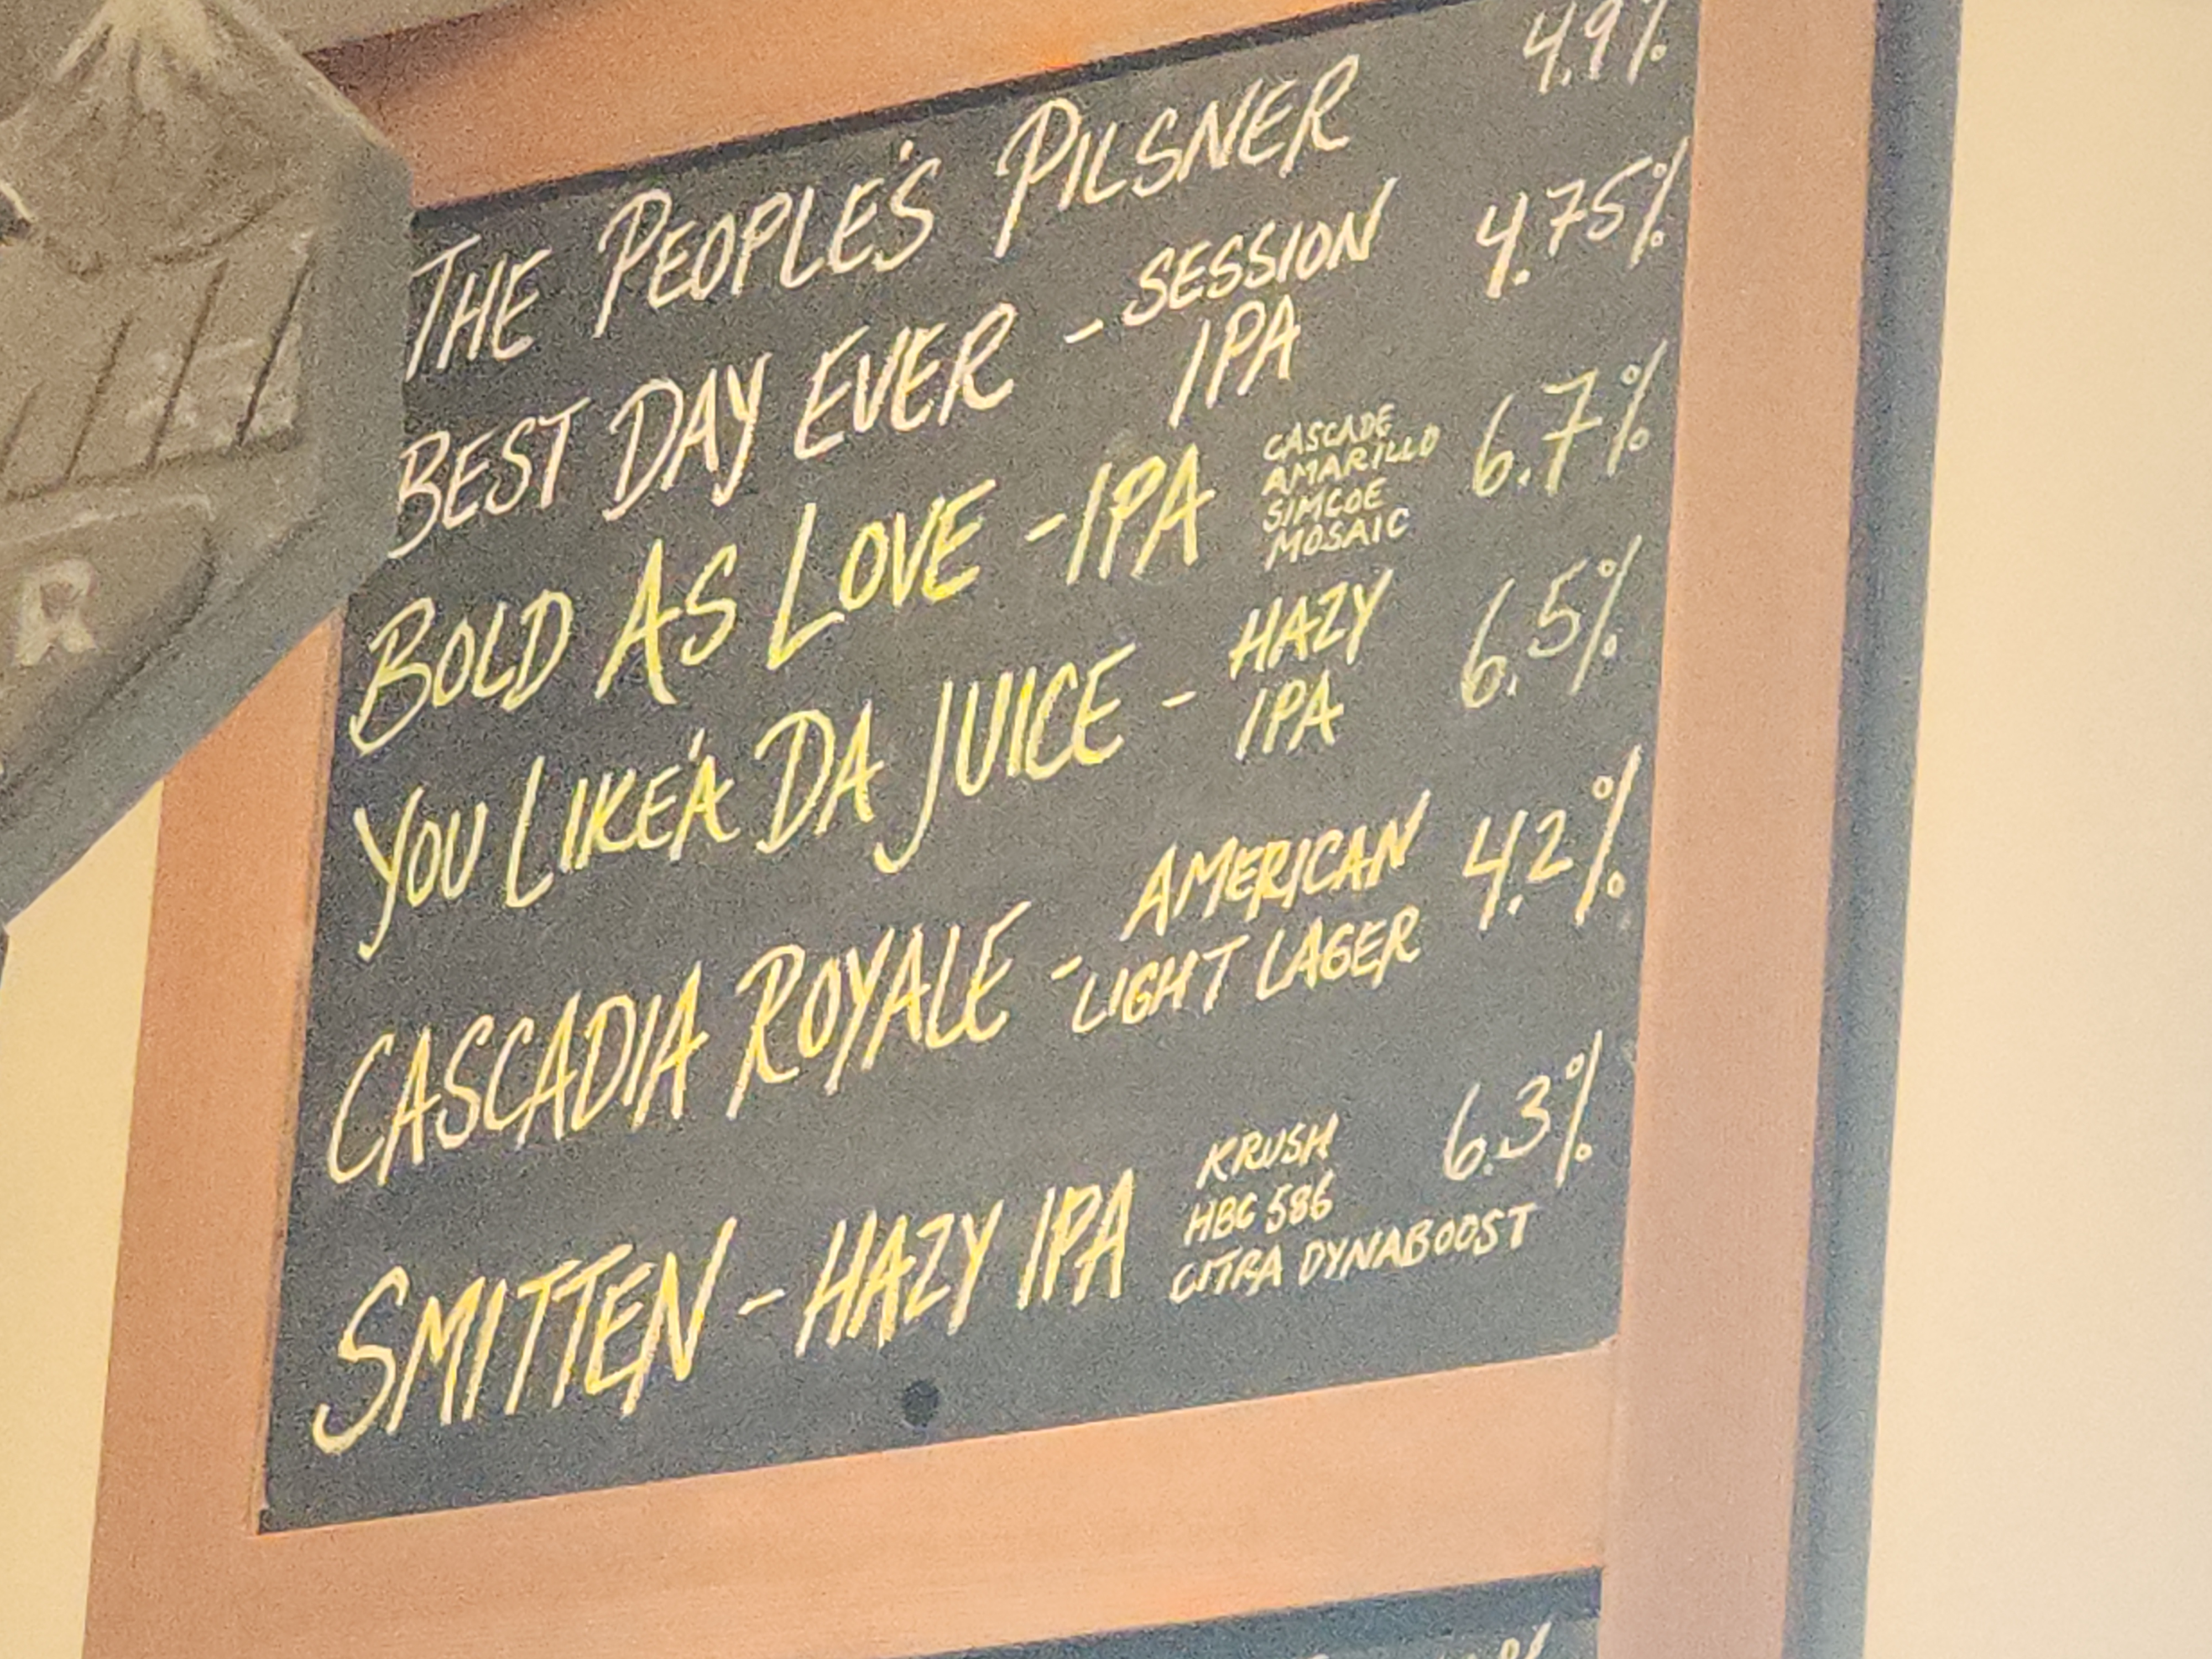 THE PEOPLE'S PILSNER 4.9%
BEST DAY EVER - SESSION IPA 4.75%
BOLD AS LOVE - IPA CASCADE AMARILLO SIMCOE MOSAIC 6.7%
YOU LIKE'A DA JUICE - HAZY IPA 6.5%
CASCADIA ROYALE - AMERICAN LIGHT LAGER 4.2%
SMITTEN - HAZY IPA KRUSH HBC 586 CITRA DYNABOOST 6.3%
R